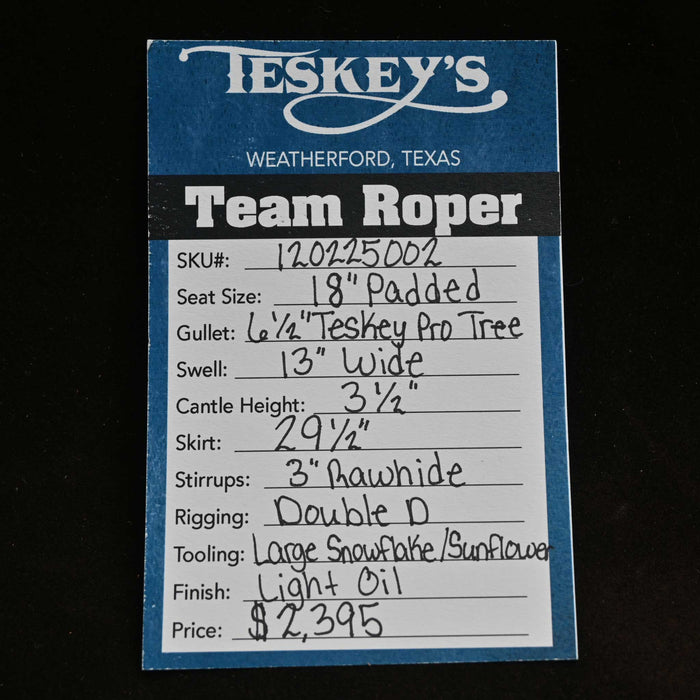 TESKEY'S
WEATHERFORD, TEXAS
Team Roper
SKU#: 120225002
Seat Size: 18" Padded
Gullet: 6 1/2" Teskey Pro Tree
Swell: 13" Wide
Cantle Height: 3 1/2"
Skirt: 29 1/2"
Stirrups: 3" Rawhide
Rigging: Double D
Tooling: Large Snowflake/Sunflower
Finish: Light Oil
Price: $2,395